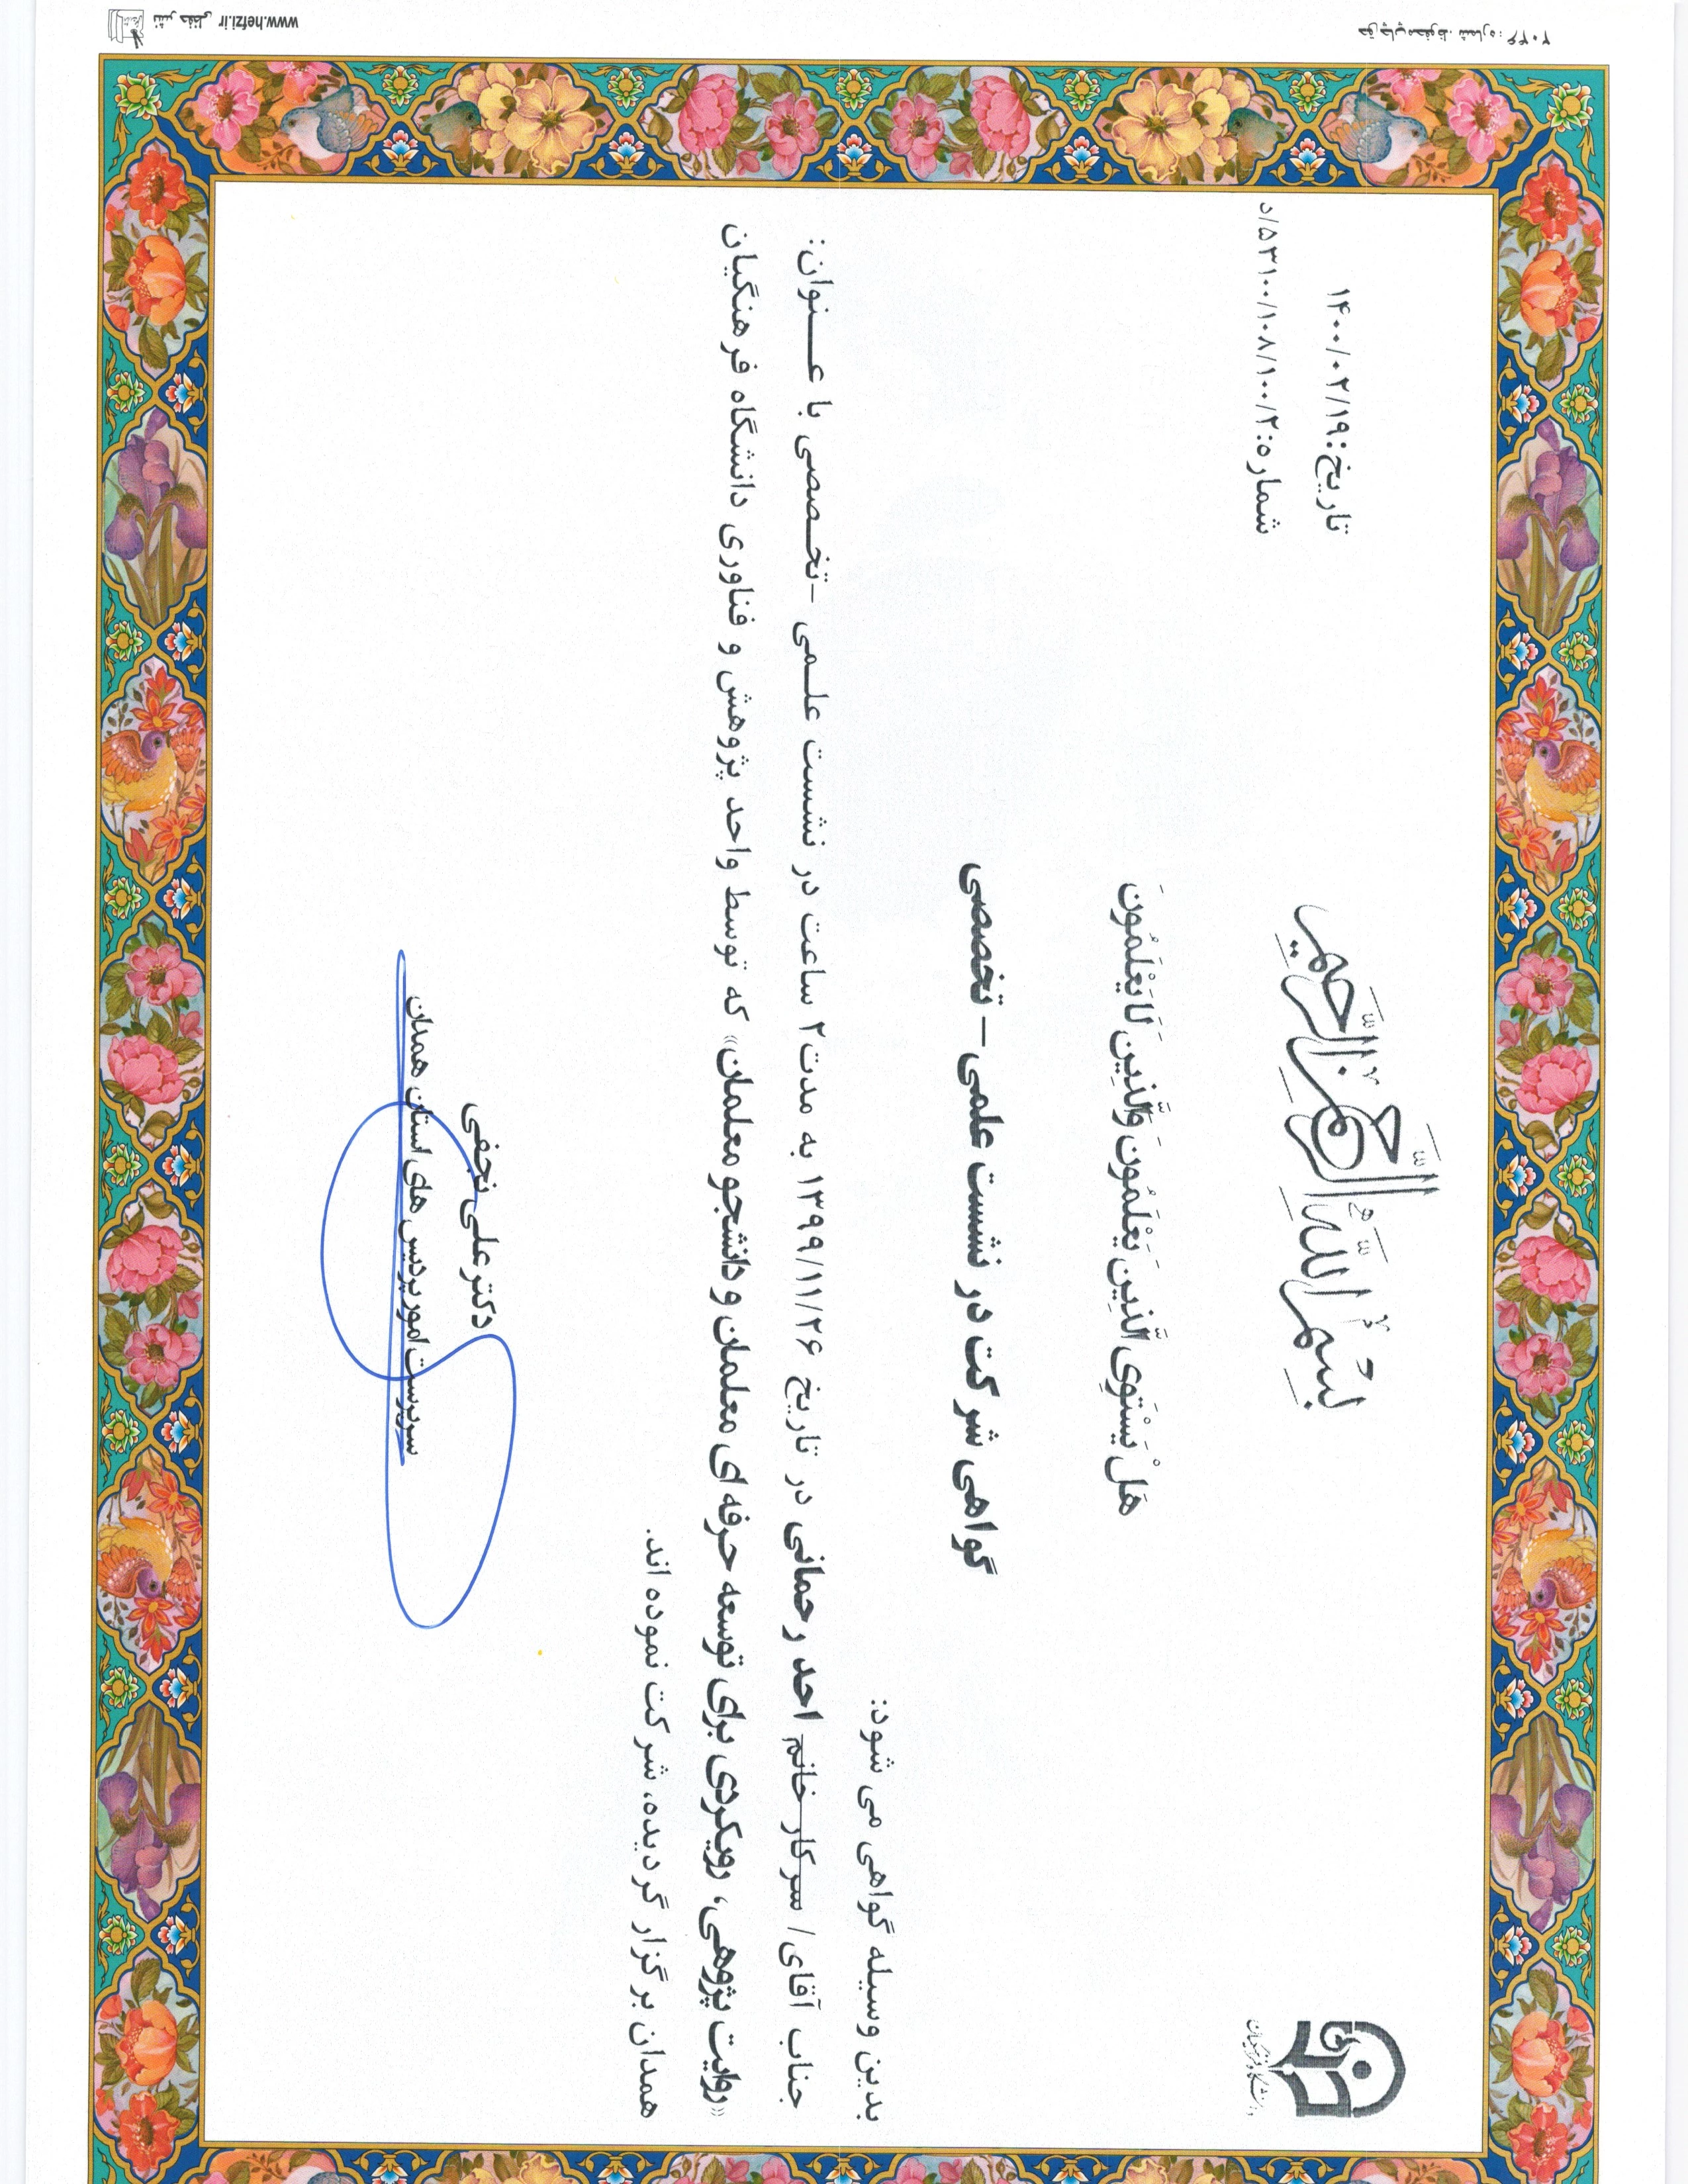 بِسْمِ اللَّهِ الرَّحْمَنِ الرَّحِيمِ
دانشگاه فرهنگیان
تاریخ: ۱۴۰۰/۰۲/۱۹
شماره: ۵۳۱۰۰/۱۰۸/۱۰۰/۲/د
هَلْ يَسْتَوِي الَّذِينَ يَعْلَمُونَ وَالَّذِينَ لَا يَعْلَمُونَ
گواهی شرکت در نشست علمی – تخصصی
بدین وسیله گواهی می شود:
جناب آقای/ سرکار خانم احد رحمانی در تاریخ ۱۳۹۹/۱۱/۲۶ به مدت ۲ ساعت در نشست علمی -تخصصی با عنوان:
«روایت پژوهی، رویکردی برای توسعه حرفه ای معلمان و دانشجو معلمان» که توسط واحد پژوهش و فناوری دانشگاه فرهنگیان
همدان برگزار گردیده، شرکت نموده اند.
دکتر علی نجفی
سرپرست امور پردیس های استان همدان
نشر حفظی www.hefzi.ir
حق چاپ محفوظ، شماره: ۲۰۴۶